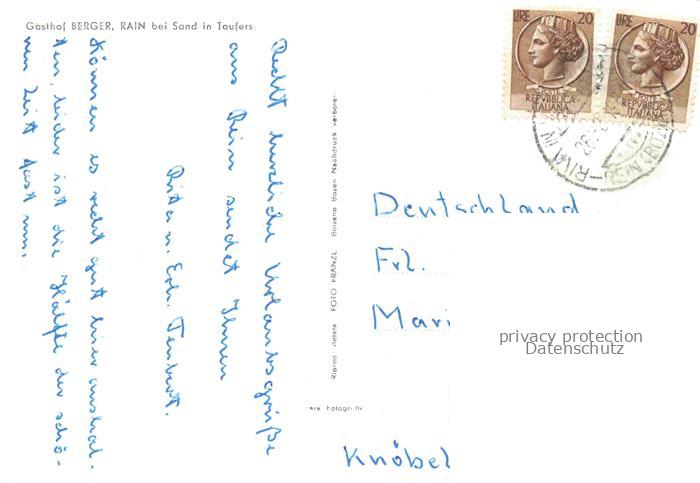 Gasthof BERGER, RAIN bei Sand in Taufers
Recht herzliche Urlaubsgrüße
aus Rein sendet Ihnen
Rita u. Edr. Tenbert.
Können es recht gut hier aushal-
ten, leider ist die Hälfte der schö-
nen Zeit fast um.
Riprod. vietata FOTO FRÄNZL Bolzano Bozen Nachdruck verboten
vera Fotografia
LIRE 20
POSTE
REPVBBLICA
ITALIANA
LIRE 20
POSTE
REPVBBLICA
ITALIANA
Deutschland
Frl.
Mari
Knöbel
privacy protection
Datenschutz